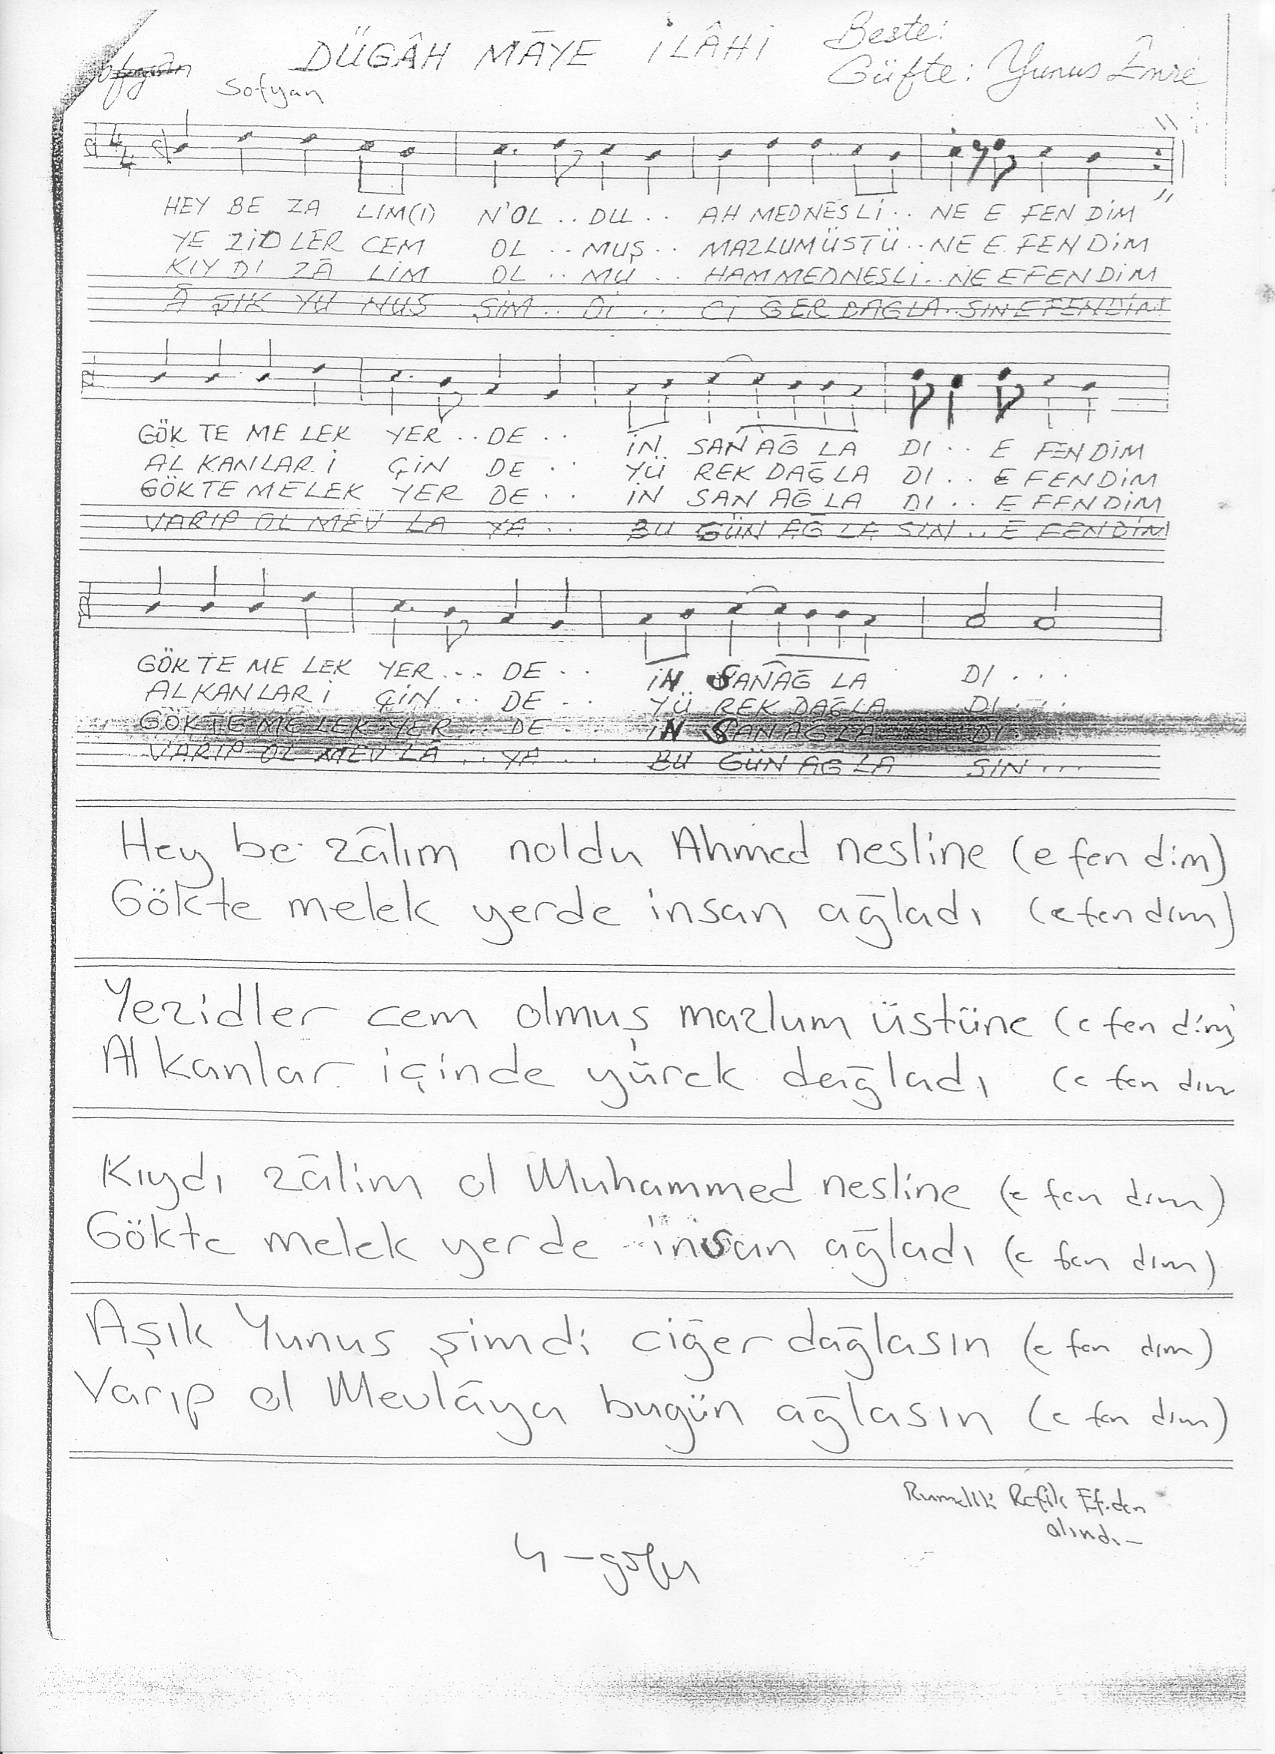 DÜGÂH MÂYE İLÂHİ
Beste:
Güfte: Yunus Emre
Sofyan
4/4
HEY BE ZA LIM(I) N'OL .. DU .. AH MED NESLİ .. NE E FEN DİM
YE ZİDLER CEM OL .. MUŞ .. MAZLUM ÜSTÜ .. NE E FEN DİM
KIY DI ZÂ LİM OL .. MU .. HAMMED NESLİ .. NE E FEN DİM
Â ŞIK YU NUS ŞİM .. Dİ .. Cİ ĞER DAĞLA .. SIN E FENDİM
GÖK TE ME LEK YER .. DE .. İN SAN AĞ LA DI .. E FEN DİM
AL KANLAR İ ÇİN DE .. YÜ REK DAĞ LA DI .. E FEN DİM
GÖKTE MELEK YER DE .. İN SAN AĞ LA DI .. E FEN DİM
VARIP OL MEV LA YA .. BU GÜN AĞ LA SIN .. E FEN DİM
GÖK TE ME LEK YER ... DE .. İN SAN AĞ LA DI ...
AL KANLAR İ ÇİN ... DE .. YÜ REK DAĞLA DI ...
GÖKTE ME LEK YER .. DE .. İN SAN AĞ LA DI .
VARIP OL MEV LÂ .. YA .. BU GÜN AĞ LA SIN ...
Hey be zâlım noldu Ahmed nesline (e fen dim)
Gökte melek yerde insan ağladı (efen dım)
Yezidler cem olmuş mazlum üstüne (e fen dim)
Al kanlar içinde yürek dağladı (e fen dım
Kıydı zâlim ol Muhammed nesline (e fen dım)
Gökte melek yerde insan ağladı (e fen dım)
Aşık Yunus şimdi ciğer dağlasın (e fen dım)
Varıp ol Mevlâya bugün ağlasın (e fen dım)
Rumelili Refik Ef.den
alındı-